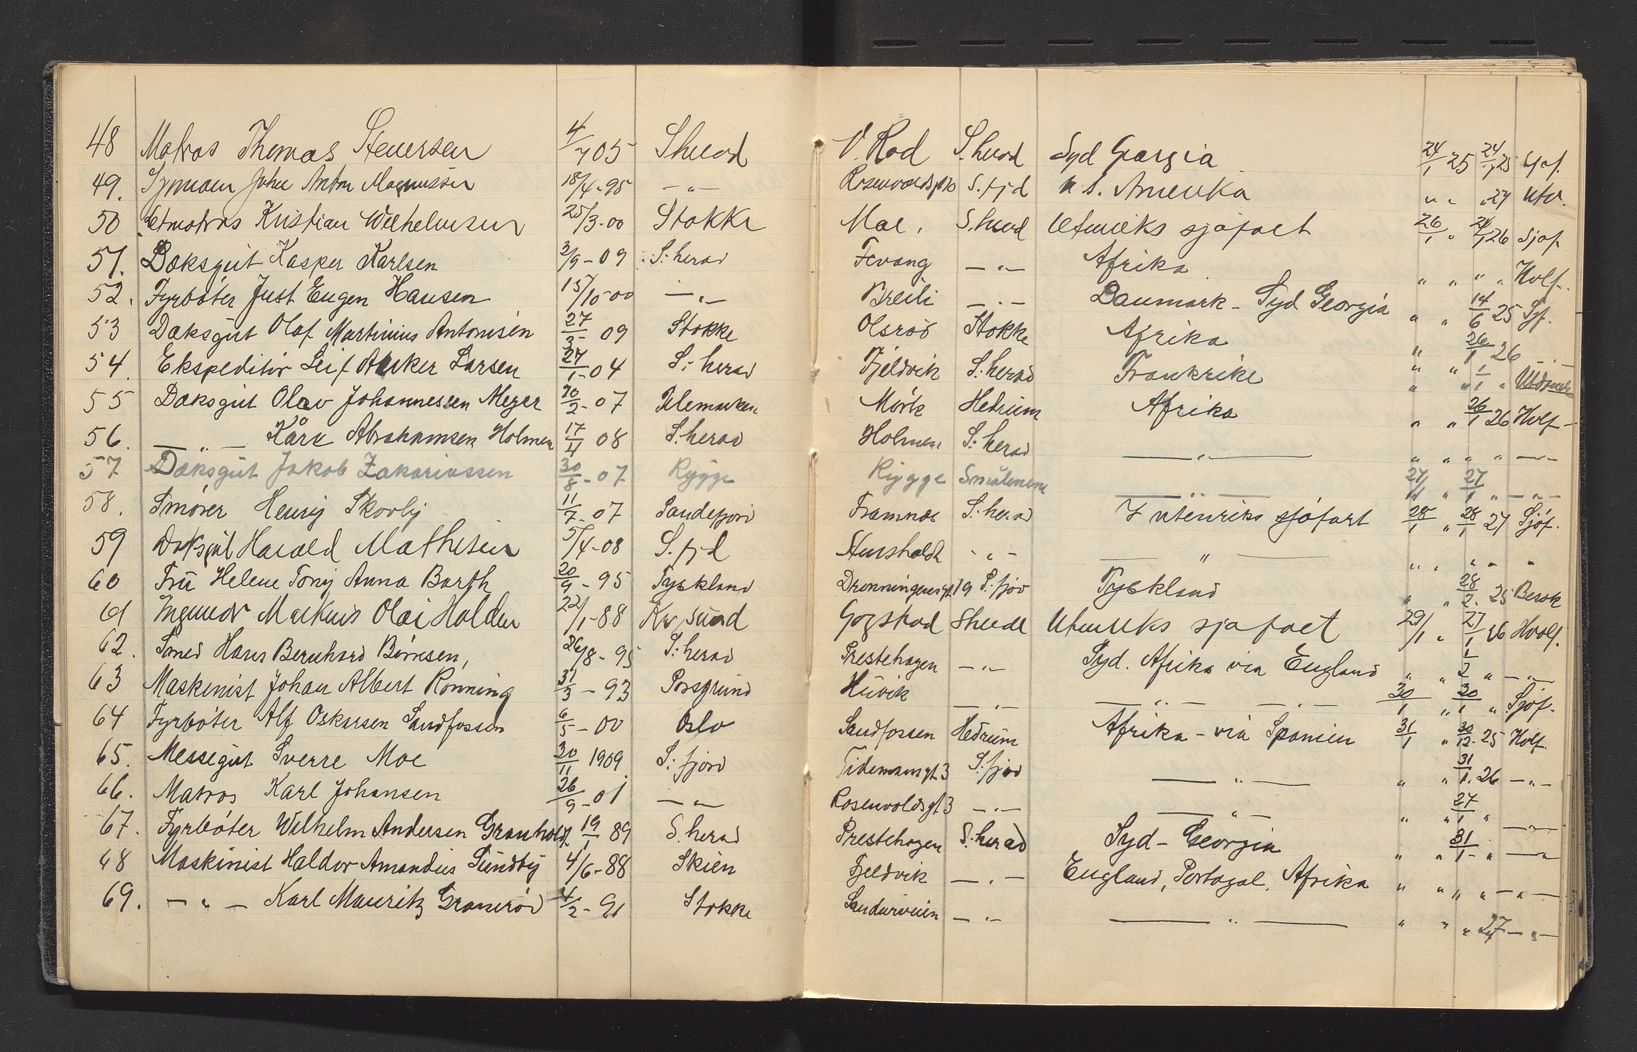 48 Matros Thomas Steversen 4/7 05 S.herad V. Rød S.herad Syd Georgia 24/1 25 24/1 25 Sjøf.
49. Sjømaen Johe Anton Magnussen 18/4-95 —„— Rosenvoldsgt 10 S.fjd N. S. Amerika „ „ „ 27 Utv.
50 Letmatros Kristian Wilhelmsen 25/3-00 Stokke Moe. S.herad Utenriks sjøfart 26/1 „ 24/1 26 Sjøf.
51. Dæksgut Kasper Karlsen 3/9-09 S.herad Fevang —„— Afrika „ „ „ „ Hvlf.
52. Fyrbøter Just Eugen Hansen 15/10-00 —„— Breili —„— Danmark - Syd Georgia „ „ 14/6 25 Sjf.
53 Dæksgut Olaf Martinius Antonisen 27/3- 09 Stokke Olsrød Stokke Afrika „ „ 26/1 26 —„—
54. Ekspeditør Leif Anker Larsen 27/1-04 S:herad Fjeldvik S.herad Frankrike „ „ 1/1 „
55 Dæksgut Olav Johannessen Meyer 20/2-07 Mørk Hedrum Afrika „ „ 26/1 26 Hvlf
56. —„— Kåre Abrahamsen Holmen 17/11 08 S.herad Holmen S:herad —„— „ „ „ „ —„—
57 Dæksgut Jakob Zakariassen 30/8-07 Rygge Rygge Smålenene —„— 27/1 „ 27/1 „ —„—
58. Smører Henry Skovly 11/7-07 Sandefjord Framnæs S.herad I utenriks sjøfart 28/1 „ 28/1 27 Sjøf.
59 Dæksgut Harald Mathisen 5/4-08 S.fjd —„— —„— „ „ „ „ „
60 Fru Helene Tony Anna Barth 20/9-95 Tyskland Dronningensgt 19 S.fjord Tyskland „ „ 28/2 25 Besøk
61 Ingeniør Markus Olai Holden 22/1-88 Kv. sund Gogstad S.herad Utenriks sjøfart 29/1 „ 27/1 26 Hvalf.
62. Smed Hans Bernhard Børresen, 26/8-95 S:herad Prestehagen —„— Syd. Afrika via England „ „ 1/2 „ —„—
63 Maskinist Johan Albert Rønning 31/3-93 Porsgrund Huvik —„— —„— 30/1 „ 30/1 „ Sjøf.
64 Fyrbøter Alf Oskarsen Sandfossen 6/5-00 Oslo Sandfossen Hedrum Afrika - via Spanien 31/1 „ 30/12-25 Hvlf.
65. Messegut Sverre Moe 20/11 1909 S:fjord Tidemansgt 3 S.fjord —„— „ „ 31/1. 26 —„—
66. Matros Karl Johansen 26/9-01 —„— Rosenvoldsgt 3 —„— —„— „ „ 27/1 „ —„—
67. Fyrbøter Wilhelm Andersen Granholdt. 19/1 89 S.herad Prestehagen S.herad Syd-Georgia „ „ 31/1- „ —„—
68 Maskinist Haldor Amandus Sundby 4/6-88 Skien Fjeldvik —„— England, Portugal, Afrika „ „ „ „ —„—
69. —„— Karl Mauritz Granerød 4/2-91 Stokke Sandarveien —„— —„— „ „ „ 27 —„—